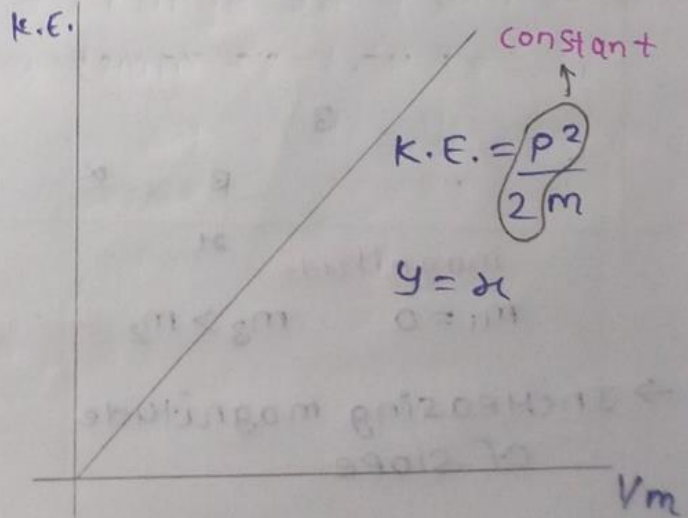 K.E.
constant
↑
K.E. = P²
2m
y = x
Vm